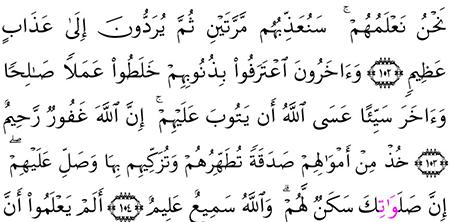 نَحْنُ نَعْلَمُهُمْ ۚ سَنُعَذِّبُهُم مَّرَّتَيْنِ ثُمَّ يُرَدُّونَ إِلَىٰ عَذَابٍ
عَظِيمٍ ١٠٢ وَءَاخَرُونَ ٱعْتَرَفُوا۟ بِذُنُوبِهِمْ خَلَطُوا۟ عَمَلًا صَـٰلِحًا
وَءَاخَرَ سَيِّئًا عَسَى ٱللَّهُ أَن يَتُوبَ عَلَيْهِمْ ۚ إِنَّ ٱللَّهَ غَفُورٌ رَّحِيمٌ
١٠٣ خُذْ مِنْ أَمْوَٰلِهِمْ صَدَقَةً تُطَهِّرُهُمْ وَتُزَكِّيهِم بِهَا وَصَلِّ عَلَيْهِمْ ۖ
إِنَّ صَلَوَٰتِكَ سَكَنٌ لَّهُمْ ۗ وَٱللَّهُ سَمِيعٌ عَلِيمٌ ١٠٤ أَلَمْ يَعْلَمُوٓا۟ أَنَّ